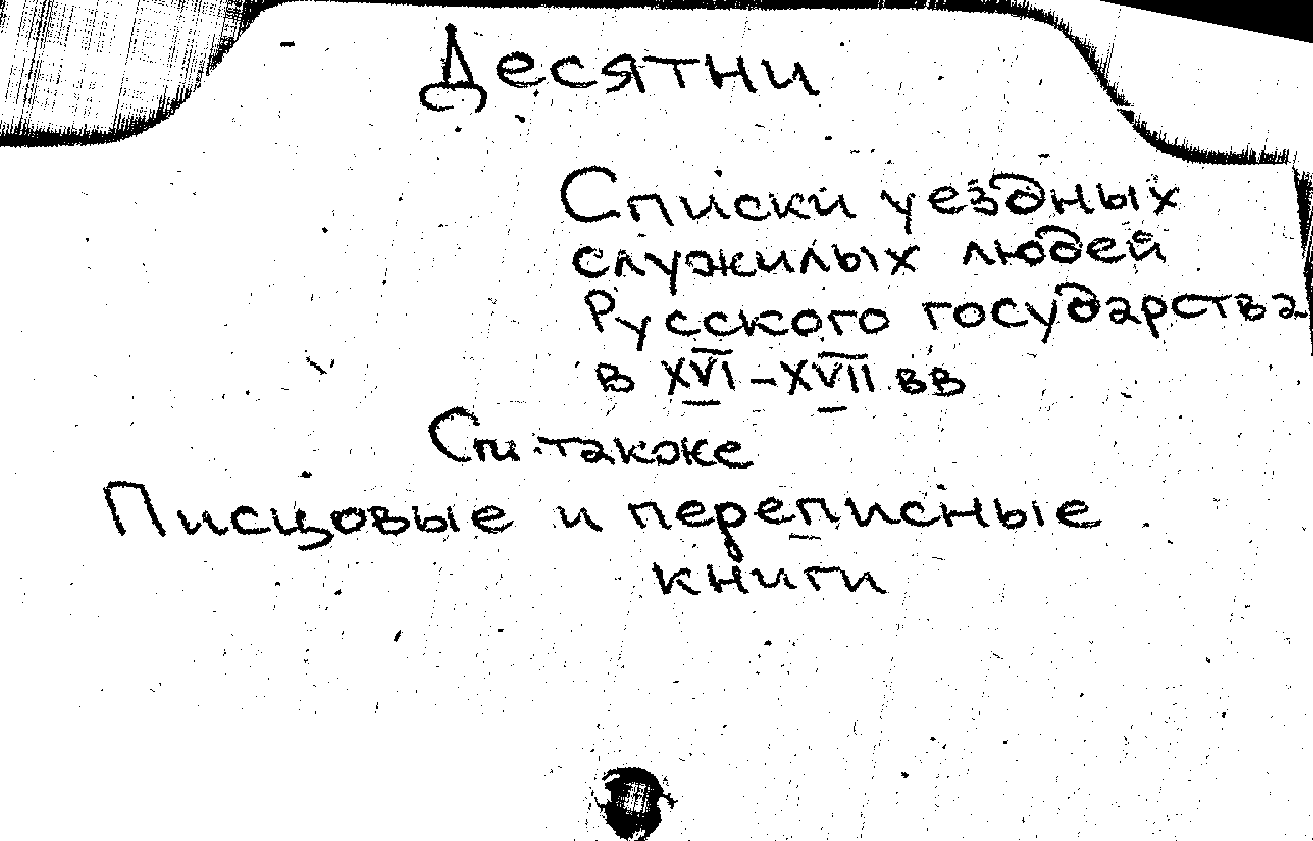 Десятни
Списки уездных
служилых людей
Русского государства
в XVI-XVII вв
См. также
Писцовые и переписные
книги